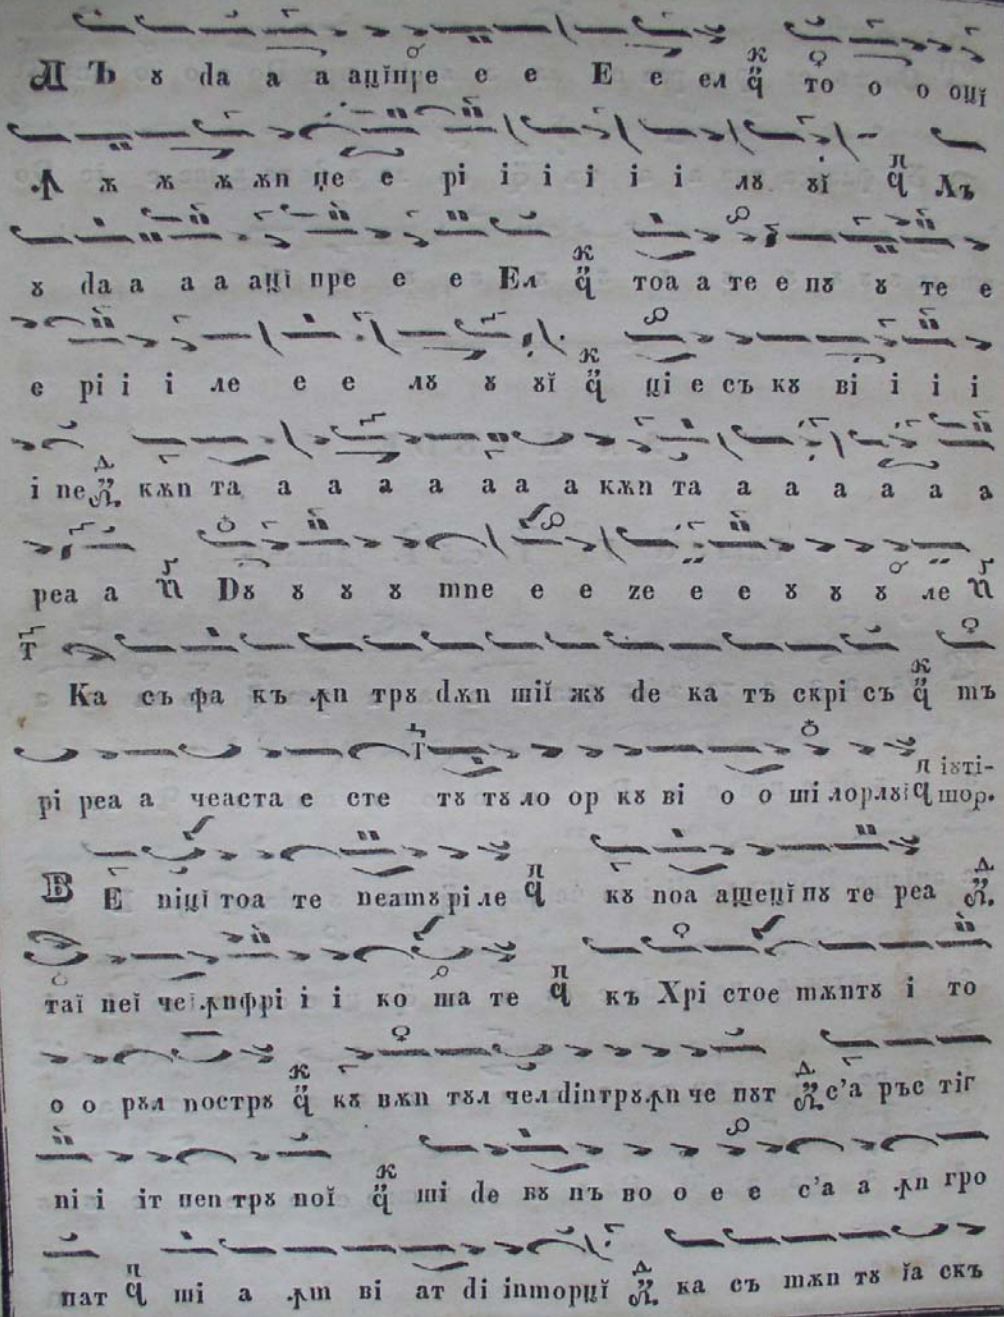 Лъ ꙋ da а а ацїпре е е Е е ел то о о оцї
Ꙟ ѫ ѫ ѫ ѫп џе е рі і і і і і лꙋ ꙋї Лъ
ꙋ da а а а ацї пре е е Ел тоа а те е пꙋ ꙋ те е
е рі і і ле е е лꙋ ꙋ ꙋї ці е съ кꙋ ві і і і
і пе кѫп та а а а а а а а кѫп та а а а а а а
реа а Dꙋ ꙋ ꙋ ꙋ mпе е е ze е е ꙋ ꙋ ꙋ ле
Ка съ фа къ ꙟп трꙋ dѫп шії жꙋ de ка тъ скрі съ mъ
рі реа а чеаста е сте тꙋ тꙋ ло ор кꙋ ві о о ші лорлꙋї іꙋті-
шор.
В Е піці тоа те пеаmꙋ рі ле кꙋ поа ащецї пꙋ те реа
таї пеї чеї ꙟпфрі і і ко ша те къ Хрі стос mѫптꙋ і то
о о рꙋл пострꙋ кꙋ вѫп тꙋл чел dіптрꙋ ꙟп че пꙋт с’а ръс тіг
пі і іт пеп трꙋ пої ші de вꙋ пъ во о е е с’а а ꙟп гро
пат ші а ꙟm ві ат dі іпторцї ка съ mѫп тꙋ їа скъ